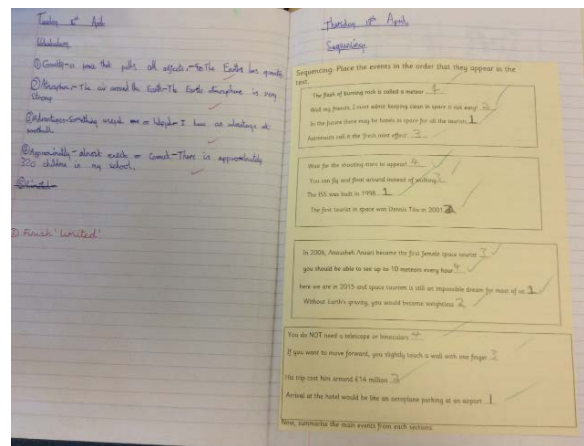 Vocabulary
① Gravity-a force that pulls all objects.-The Earth has gravity.
② Atmosphere- The air around the Earth-The Earths atmosphere is very
strong
③ Advantages-Something useful or helpful-I have an advantage at
football.
④ Approximately - almost exact or correct-There is approximately
320 children in my school.
⑤ Limited-
① Finish 'limited'
Thursday April
Sequencing
Sequencing: Place the events in the order that they appear in the
text.
The flash of burning rock is called a meteor 4
Well my friends, I must admit keeping clean in space is not easy! 2
In the future there may be hotels in space for all the tourists 1
Astronauts call it the 'fresh mint effect' 3
Wait for the shooting stars to appear! 4
You can fly and float around instead of walking 3
The ISS was built in 1998. 1
The first tourist in space was Dennis Tito in 2001 2
In 2006, Anousheh Ansari became the first female space tourist 3
you should be able to see up to 10 meteors every hour 4
here we are in 2015 and space tourism is still an impossible dream for most of us 1
Without Earth's gravity, you would become weightless 2
You do NOT need a telescope or binoculars 4
If you want to move forward, you slightly touch a wall with one finger 3
His trip cost him around £14 million 2
Arrival at the hotel would be like an aeroplane parking at an airport 1
Now, summarise the main events from each sections.